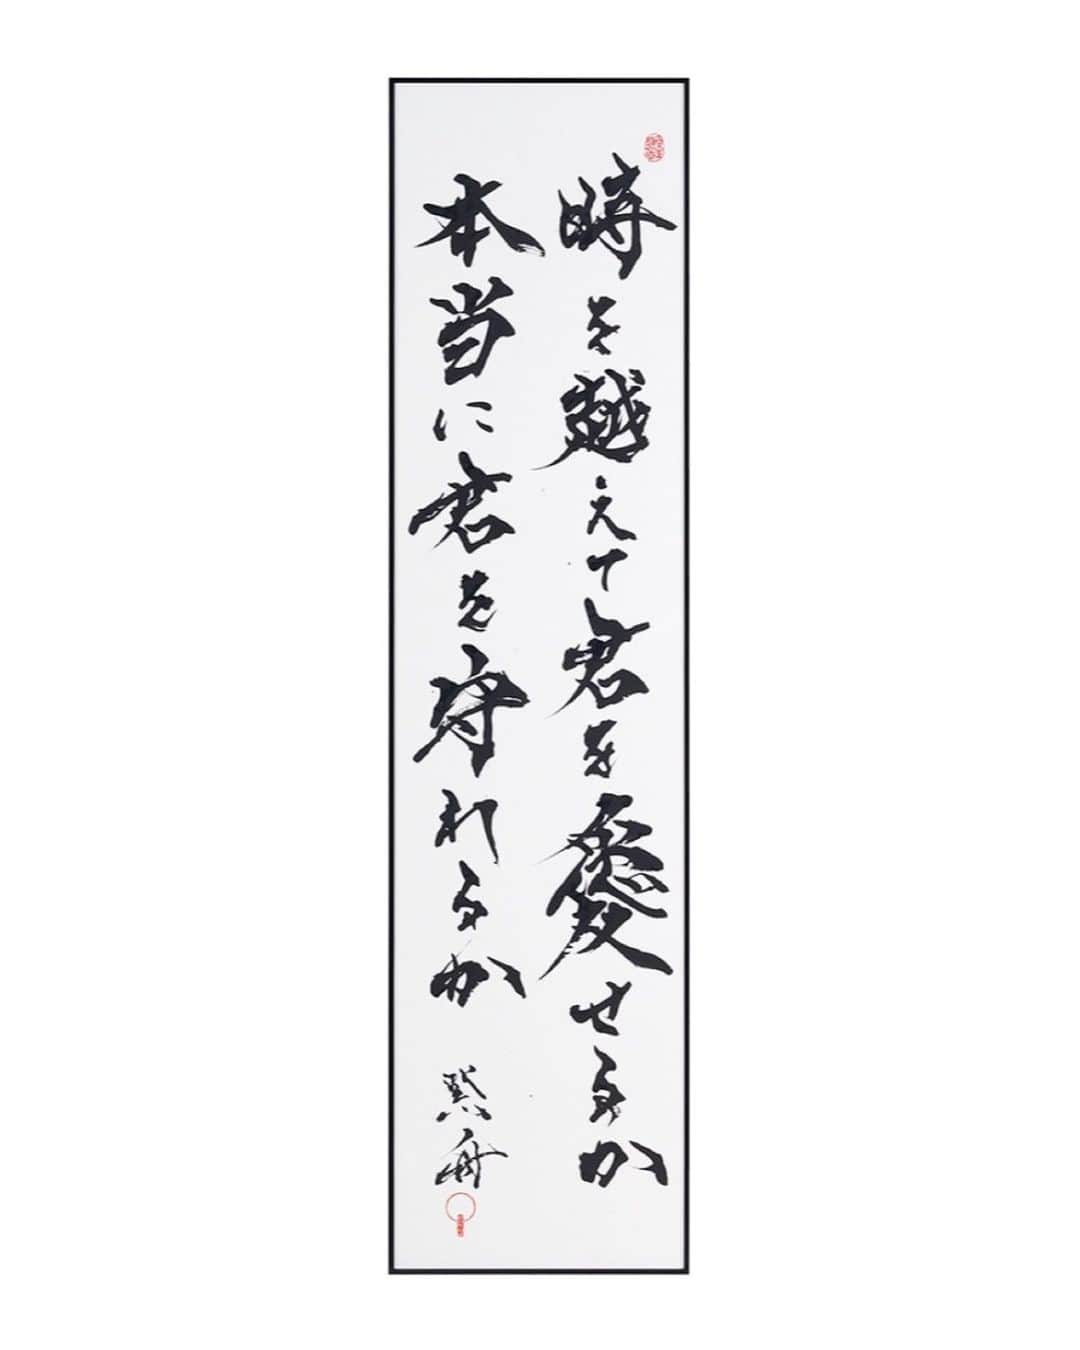 時を越えて君を愛せるか
本当に君を守れるか
黙舟